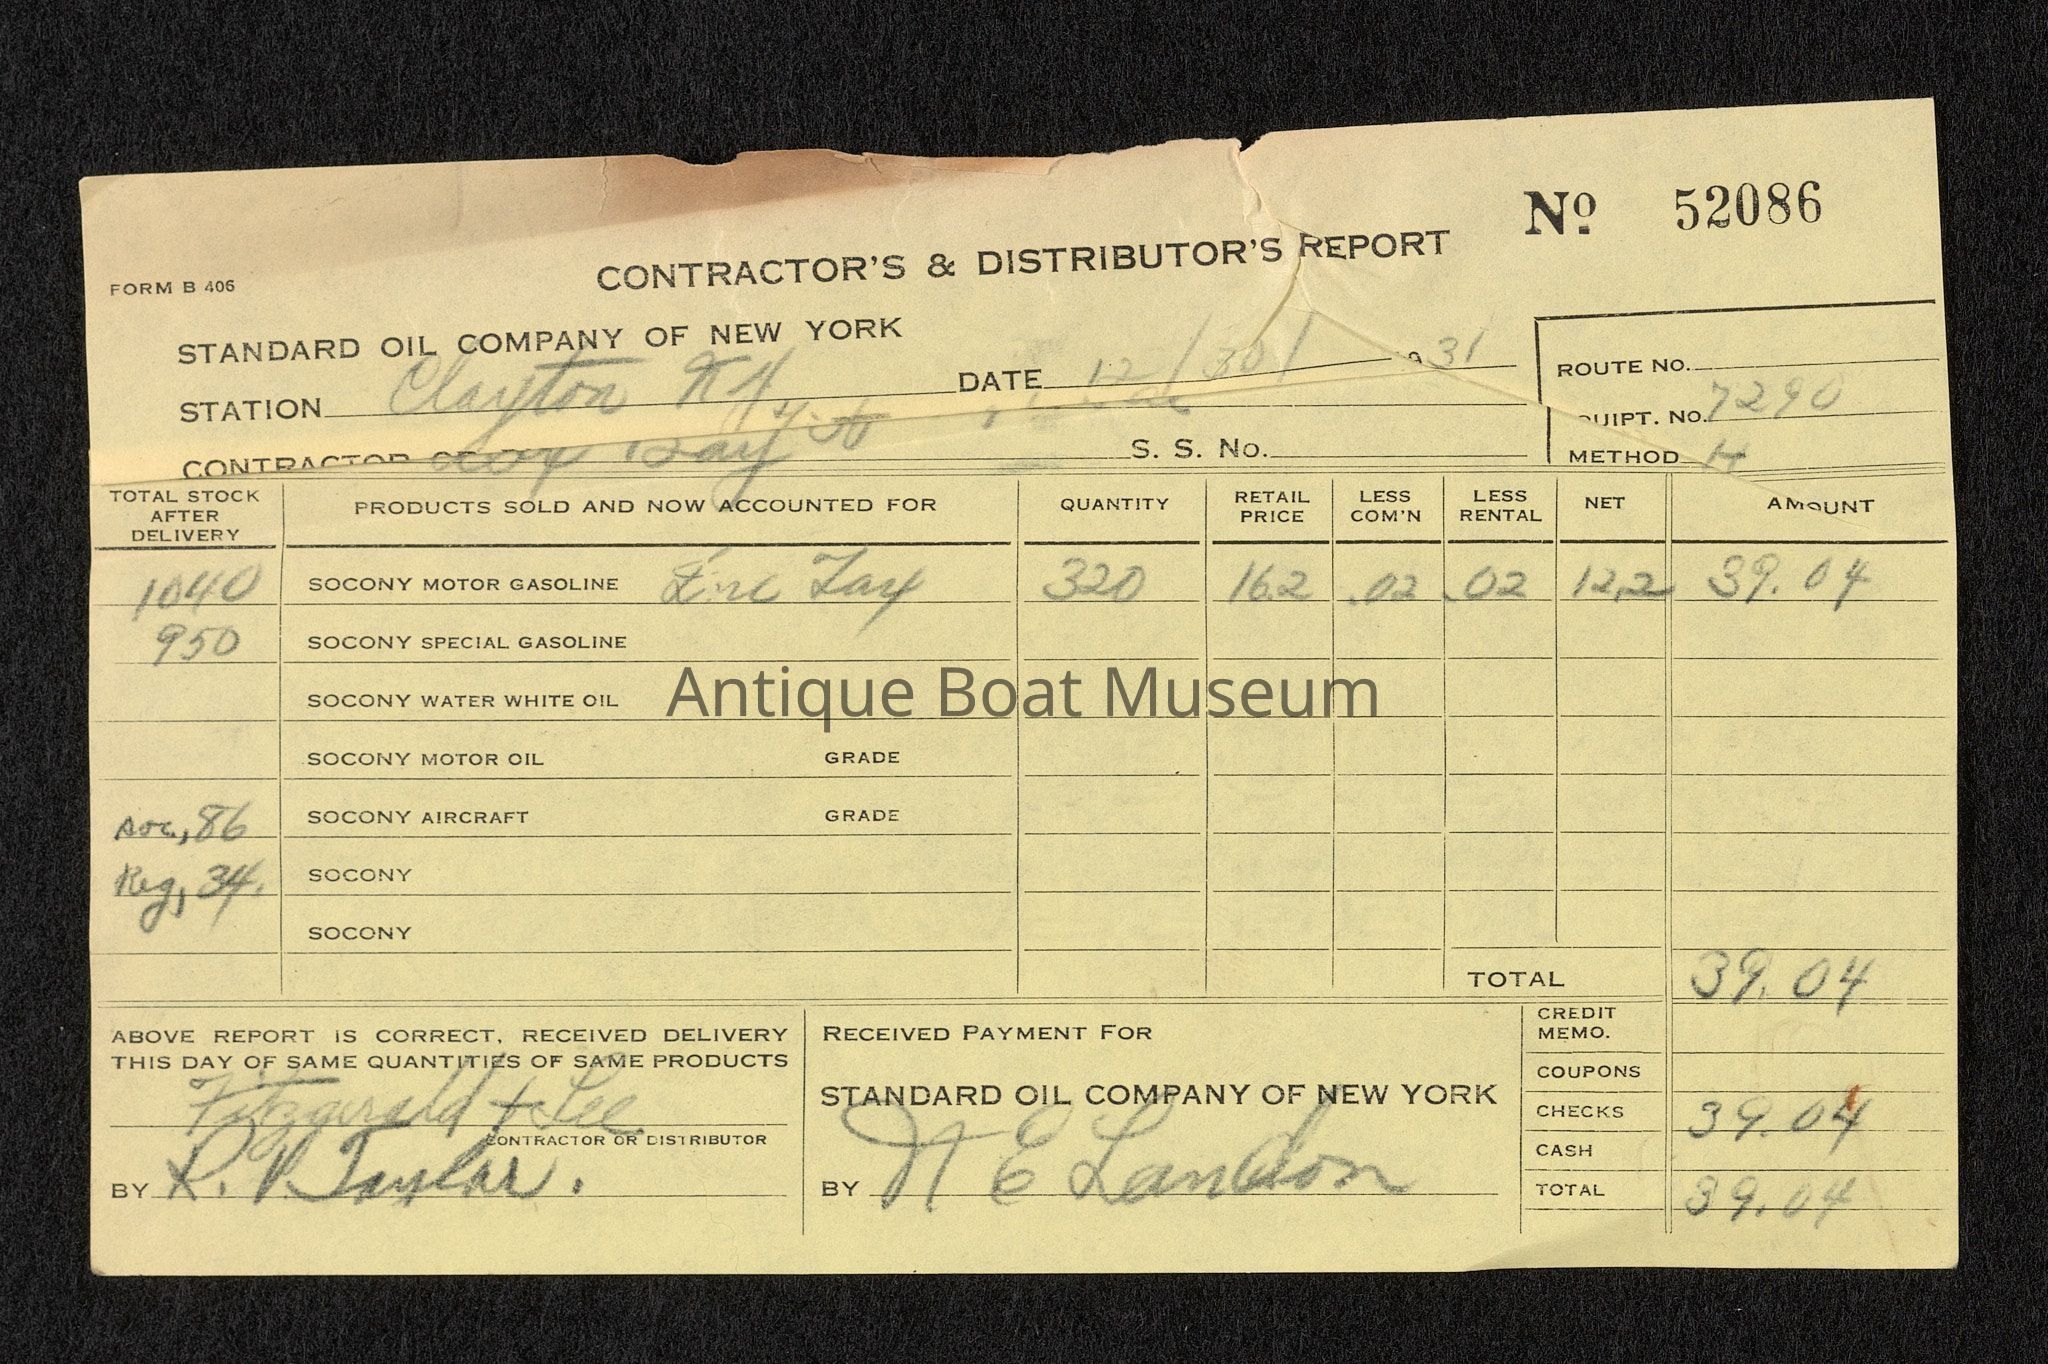 Nº 52086
FORM B 406
CONTRACTOR'S & DISTRIBUTOR'S REPORT
STANDARD OIL COMPANY OF NEW YORK
STATION Clayton N.Y. DATE 12/30/ 9 31
ROUTE NO.
QUIPT. NO. 7290
CONTRACTOR Bay S. S. No.
METHOD H
TOTAL STOCK AFTER DELIVERY PRODUCTS SOLD AND NOW ACCOUNTED FOR QUANTITY RETAIL PRICE LESS COM'N LESS RENTAL NET AMOUNT
1040 SOCONY MOTOR GASOLINE Inc Tax 320 16.2 .02 .02 12.2 39.04
950 SOCONY SPECIAL GASOLINE
SOCONY WATER WHITE OIL
Antique Boat Museum
SOCONY MOTOR OIL GRADE
soc, 86 SOCONY AIRCRAFT GRADE
Reg, 34. SOCONY
SOCONY
TOTAL 39.04
ABOVE REPORT IS CORRECT, RECEIVED DELIVERY
THIS DAY OF SAME QUANTITIES OF SAME PRODUCTS
Fitzgerald & Lee
CONTRACTOR OR DISTRIBUTOR
BY R. V. Taylor.
RECEIVED PAYMENT FOR
STANDARD OIL COMPANY OF NEW YORK
BY N E Landon
CREDIT MEMO.
COUPONS
CHECKS 39.04
CASH
TOTAL 39.04